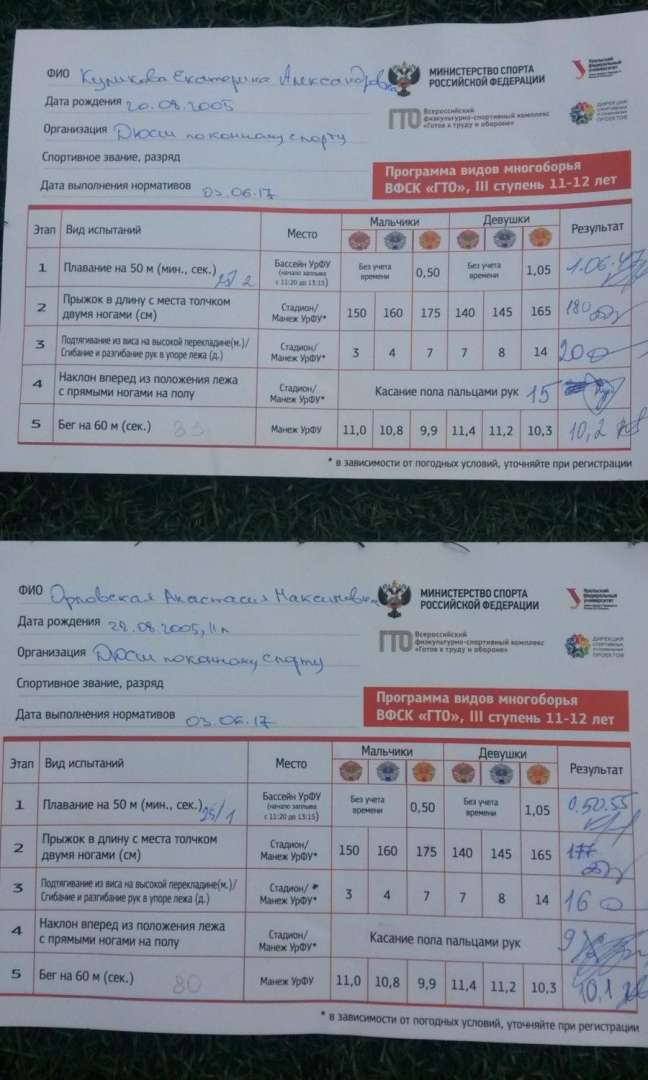 ФИО Куликова Екатерина Александровна
МИНИСТЕРСТВО СПОРТА
РОССИЙСКОЙ ФЕДЕРАЦИИ
Уральский
федеральный
университет
Дата рождения 20.08.2005
ГТО Всероссийский
физкультурно-спортивный комплекс
«Готов к труду и обороне»
ДИРЕКЦИЯ
СПОРТИВНЫХ
ПРОЕКТОВ
Организация ДЮСШ по конному спорту
Спортивное звание, разряд
Дата выполнения нормативов 03.06.17
Программа видов многоборья
ВФСК «ГТО», III ступень 11-12 лет
Этап Вид испытаний Место Мальчики Девушки Результат
1 Плавание на 50 м (мин., сек.) 25/2 Бассейн УрФУ (начало заплыва с 11:20 до 13:15) Без учета времени 0,50 Без учета времени 1,05 1.06.47
2 Прыжок в длину с места толчком двумя ногами (см) Стадион/ Манеж УрФУ* 150 160 175 140 145 165 180
3 Подтягивание из виса на высокой перекладине(м.)/ Сгибание и разгибание рук в упоре лежа (д.) Стадион/ Манеж УрФУ* 3 4 7 7 8 14 20
4 Наклон вперед из положения лежа с прямыми ногами на полу Стадион/ Манеж УрФУ* Касание пола пальцами рук 15
5 Бег на 60 м (сек.) Манеж УрФУ 11,0 10,8 9,9 11,4 11,2 10,3 10,2
* в зависимости от погодных условий, уточняйте при регистрации
ФИО Орловская Анастасия Максимовна
МИНИСТЕРСТВО СПОРТА
РОССИЙСКОЙ ФЕДЕРАЦИИ
Уральский
федеральный
университет
Дата рождения 29.08.2005, 11 л
ГТО Всероссийский
физкультурно-спортивный комплекс
«Готов к труду и обороне»
ДИРЕКЦИЯ
СПОРТИВНЫХ
ПРОЕКТОВ
Организация ДЮСШ по конному спорту
Спортивное звание, разряд
Дата выполнения нормативов 03.06.17
Программа видов многоборья
ВФСК «ГТО», III ступень 11-12 лет
Этап Вид испытаний Место Мальчики Девушки Результат
1 Плавание на 50 м (мин., сек.) 25/1 Бассейн УрФУ (начало заплыва с 11:20 до 13:15) Без учета времени 0,50 Без учета времени 1,05 0.50.55
2 Прыжок в длину с места толчком двумя ногами (см) Стадион/ Манеж УрФУ* 150 160 175 140 145 165 177
3 Подтягивание из виса на высокой перекладине(м.)/ Сгибание и разгибание рук в упоре лежа (д.) Стадион/ Манеж УрФУ* 3 4 7 7 8 14 16
4 Наклон вперед из положения лежа с прямыми ногами на полу Стадион/ Манеж УрФУ* Касание пола пальцами рук 9
5 Бег на 60 м (сек.) 80 Манеж УрФУ 11,0 10,8 9,9 11,4 11,2 10,3 10,1
* в зависимости от погодных условий, уточняйте при регистрации